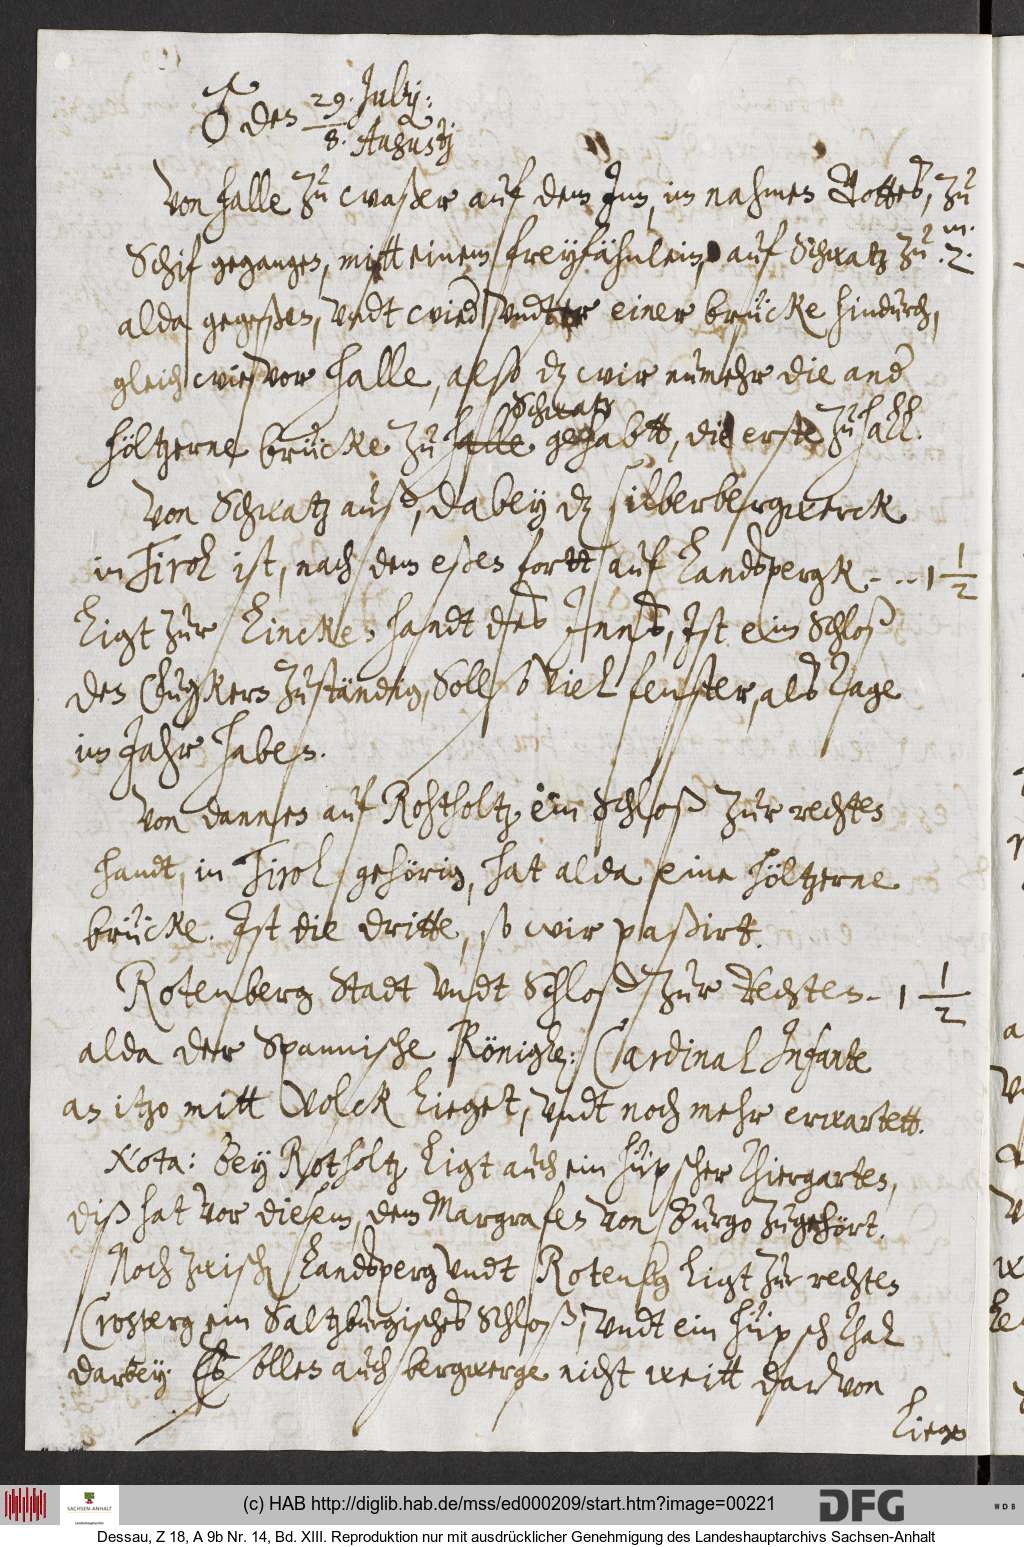 ♂ des 29. July:
8. Augustj
Von Halle zu waßer auf dem Inn, im nahmen Gottes, zu
m.
Schif gegangen, mitt einem freyfähnlein, auf Schwatz zu. 2.
alda gegeßen, vndt wied vndter einer brücke hindurch,
gleich wie vor Halle, also dz wir numehr die and
Schwatz
höltzerne brücke zu Halle gehabtt, die erste zu Hall.
Von Schwatz auß, da bey dz silberbergwerck
in Tirol ist, nach dem eßen fortt auf Landsperg - .. 1 1/2
Ligt zur Lincken handt des Inns, Ist ein Schloß
den Fuggern zuständig, Soll so viel fenster, als tage
im Jahr haben.
Von dannen auf Rohtholtz ein Schloß zur rechten
handt, in Tirol gehörig, hat alda eine höltzerne
brücke. Ist die dritte, so wir paßirt.
Rotemberg Stadt vndt Schloß zur Rechten - 1 1/2
alda der Spannische Königl: Cardinal Infante
an itzo mitt Volck lieget, vndt noch mehr erwartett.
Nota: Bey Rotholtz ligt auch ein hüpscher Thiergarten,
diß hat vor diesem, dem Margrafen von Burgo zugehört.
Noch zwisch Landsperg vndt Rotenbg ligt zur rechten
Cropperg ein Saltzburgisches Schloß, vndt ein hüpsch thal
darbey. Es sollen auch bergwerge nicht weitt darvon
liege
(c) HAB http://diglib.hab.de/mss/ed000209/start.htm?image=00221
SACHSEN-ANHALT
DFG
WDB
Dessau, Z 18, A 9b Nr. 14, Bd. XIII. Reproduktion nur mit ausdrücklicher Genehmigung des Landeshauptarchivs Sachsen-Anhalt